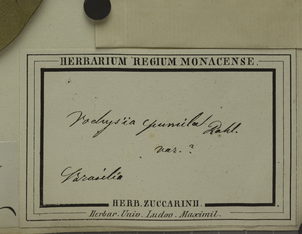 HERBARIUM REGIUM MONACENSE.
Vochysia pumila Pohl.
var.?
Brasilia
HERB. ZUCCARINII.
Herbar. Univ. Ludov. Maximil.